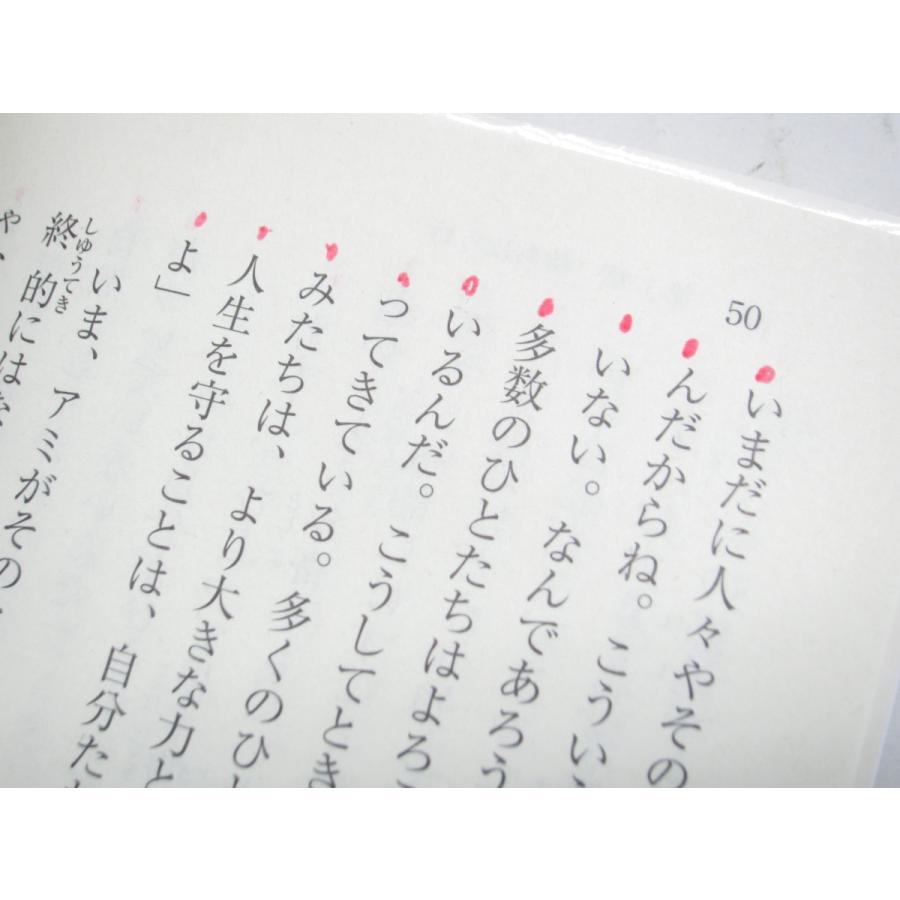 50
いまだに人々やその
んだからね。こうい
いない。なんであろう
多数のひとたちはよろ
いるんだ。こうしてとき
ってきている。多くのひ
みたちは、より大きな力と
人生を守ることは、自分た
よ」
いま、アミがその
終的には
しゅうてき
や、